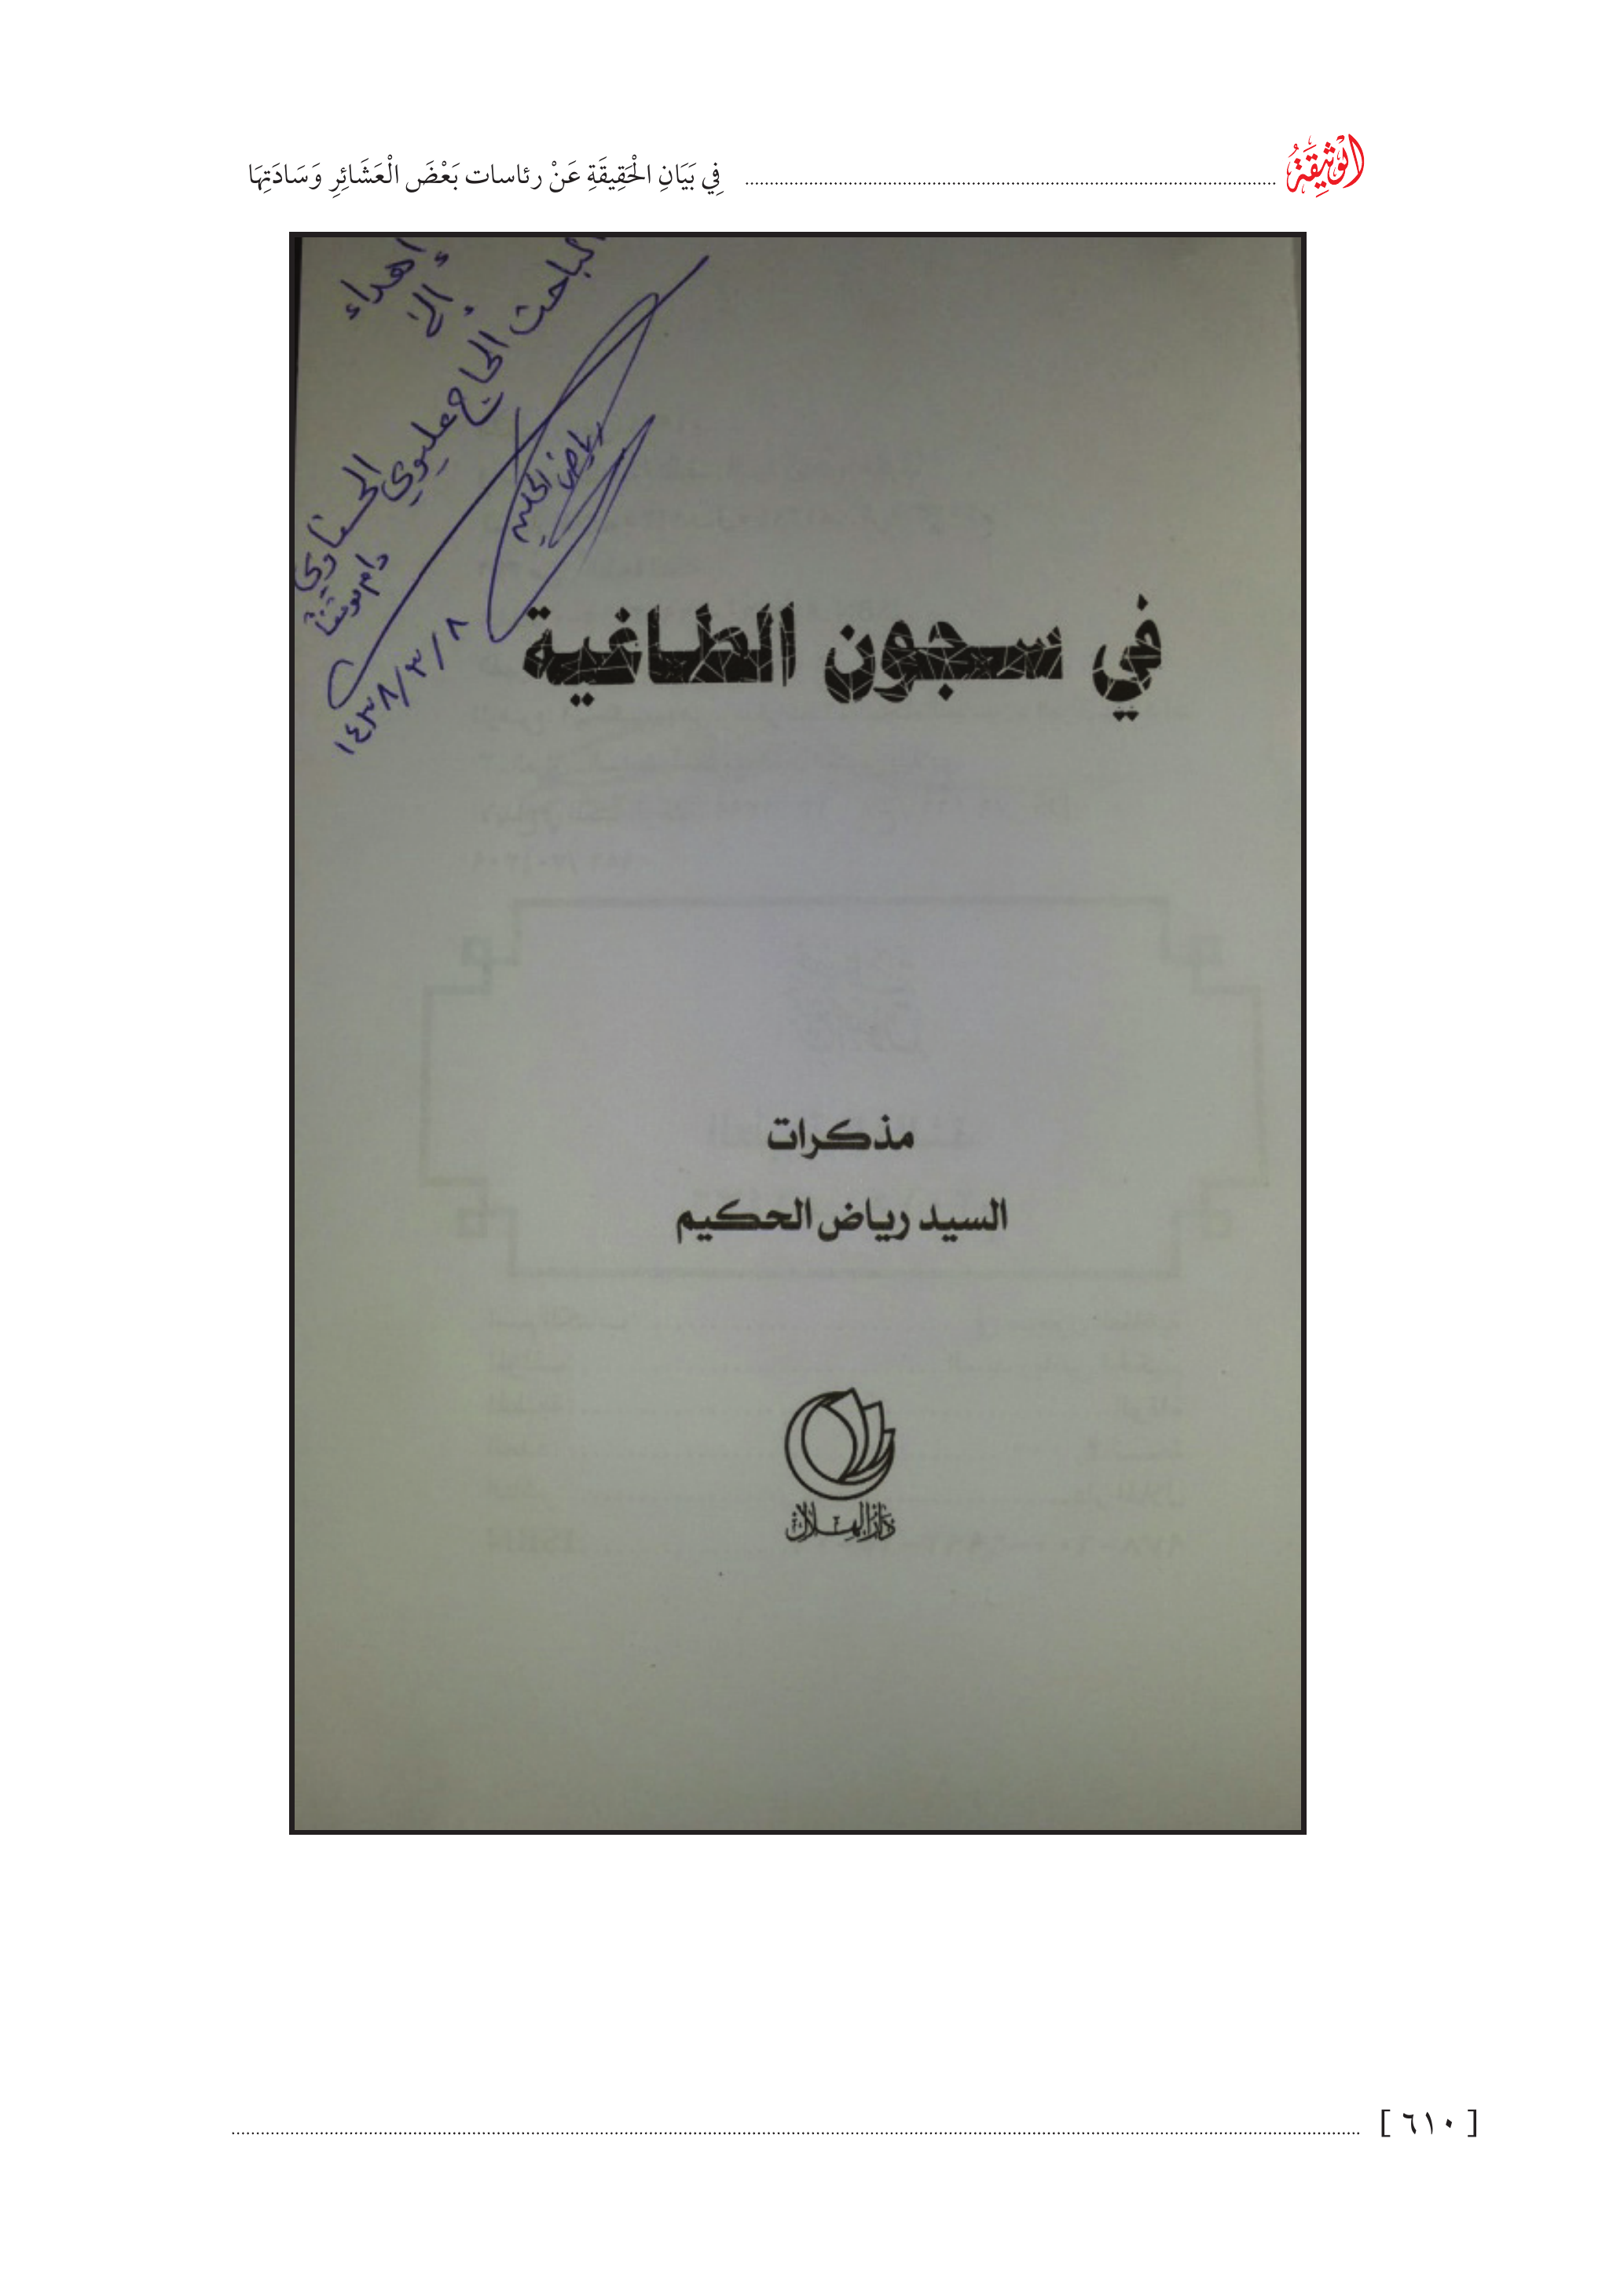 الْوَثِيقَةُ
فِي بَيَانِ الْحَقِيقَةِ عَنْ رئاسات بَعْضَ الْعَشَائِرِ وَسَادَتِهَا
إهداء
إلى
الباحث الحاج عليوي
الحسناوي
دام موفقاً
رياض الحكيم
١٤٣٨/٣/٨
في سجون الطاغية
مذكرات
السيد رياض الحكيم
دار الهلال
[ ٦١٠ ]